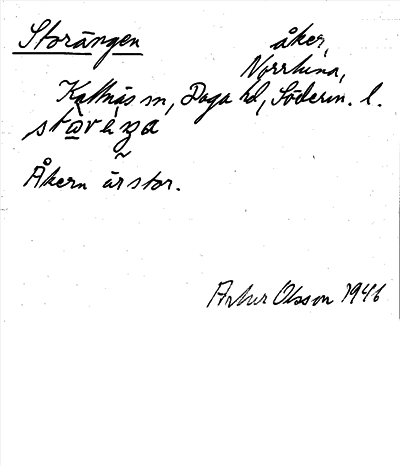 Storängen åker,
Norrtuna,
Kattnäs sn, Daga hd, Söderm. l.
Åkern är stor.
Artur Olsson 1946